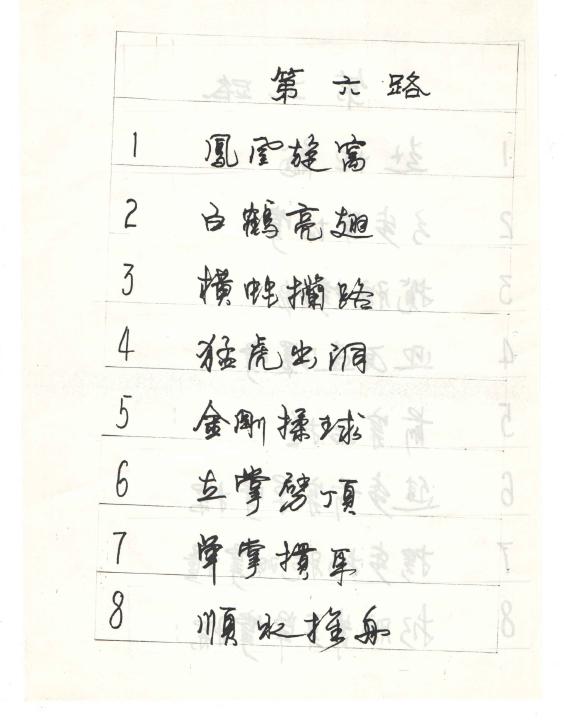 第六路
1 鳳凰旋窩
2 白鶴亮翅
3 橫蛇攔路
4 猛虎出洞
5 金剛揉球
6 立掌劈頂
7 單掌摜耳
8 順水推舟